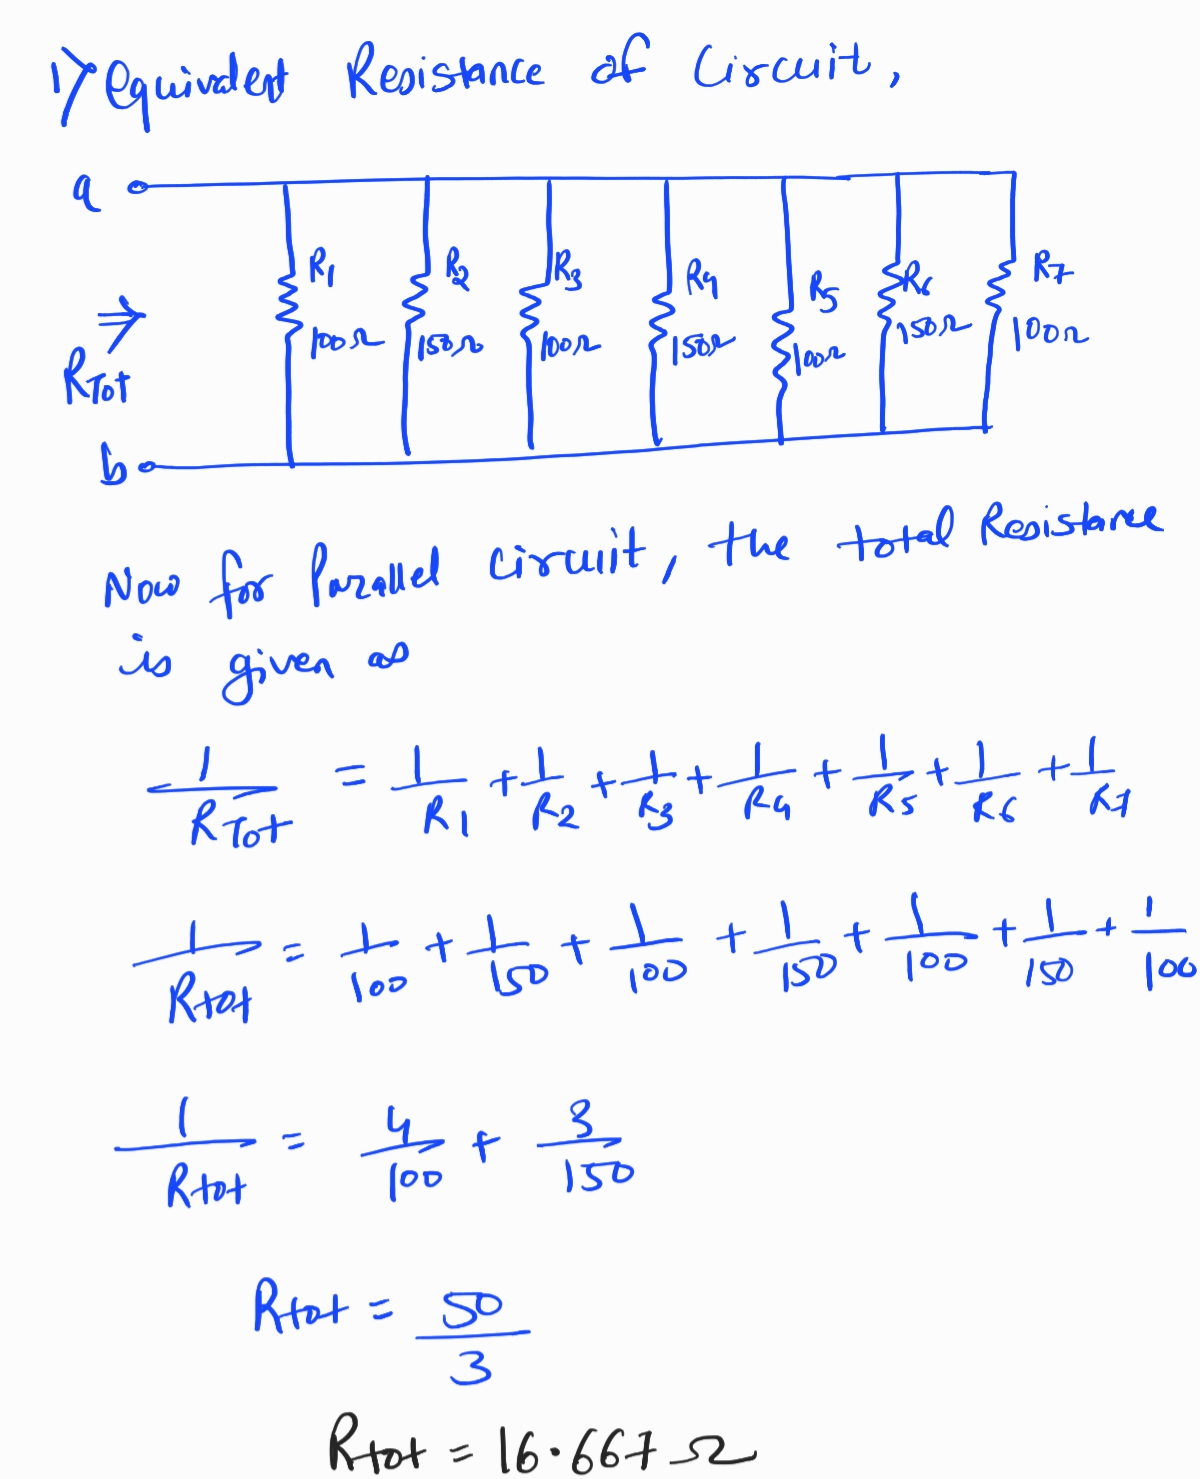 1) Equivalent Resistance of Circuit,
a
R1 R2 R3 R4 R5 R6 R7
100Ω 150Ω 100Ω 150Ω 100Ω 150Ω 100Ω
RTot
b
Now for Parallel circuit, the total Resistance
is given as
1/RTot = 1/R1 + 1/R2 + 1/R3 + 1/R4 + 1/R5 + 1/R6 + 1/R7
1/Rtot = 1/100 + 1/150 + 1/100 + 1/150 + 1/100 + 1/150 + 1/100
1/Rtot = 4/100 + 3/150
Rtot = 50/3
Rtot = 16.667 Ω